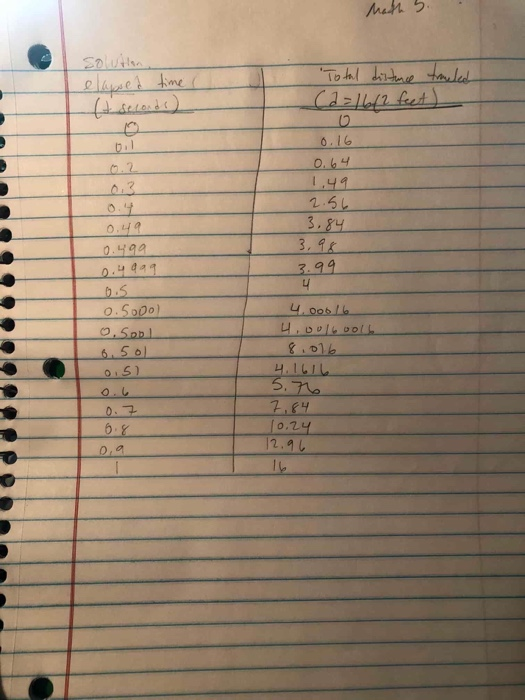 Math 5.
Solution
elapsed time Total distance traveled
(t seconds) (d=16t2 feet)
0 0
0.1 0.16
0.2 0.64
0.3 1.49
0.4 2.56
0.49 3.84
0.499 3.98
0.4999 3.99
0.5 4
0.50001 4.00016
0.5001 4.00160016
0.501 8.016
0.51 4.1616
0.6 5.76
0.7 7.84
0.8 10.24
0.9 12.96
1 16